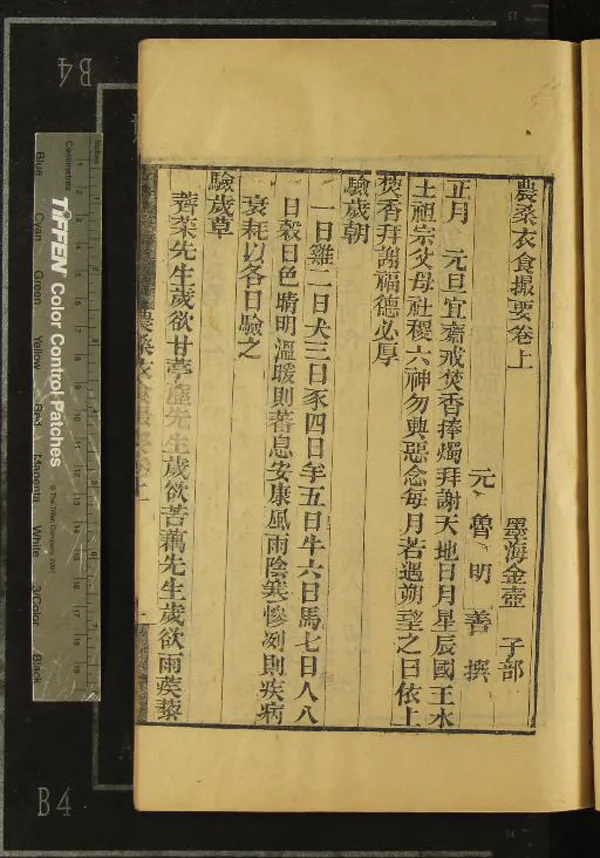 農桒衣食撮要卷上
墨海金壺 子部
元 魯 明 善 撰
正月 元旦宜齋戒焚香捧燭拜謝天地日月星辰國王水
土祖宗父母社稷六神勿興惡念每月若遇朔望之日依上
焚香拜謝福德必厚
驗歲朝
一日雞二日犬三日豕四日羊五日牛六日馬七日人八
日穀日色晴明溫暖則蕃息安康風雨陰寒慘冽則疾病
衰耗以各日驗之
驗歲草
薺菜先生歲欲甘葶藶先生歲欲苦藕先生歲欲雨蒺藜
農桒衣食撮要卷上
一
B4
B4
Inches
Centimetres
TIFFEN Color Control Patches
© The Tiffen Company, 2007
Blue
Cyan
Green
Yellow
Red
Magenta
White
3/Color
Black